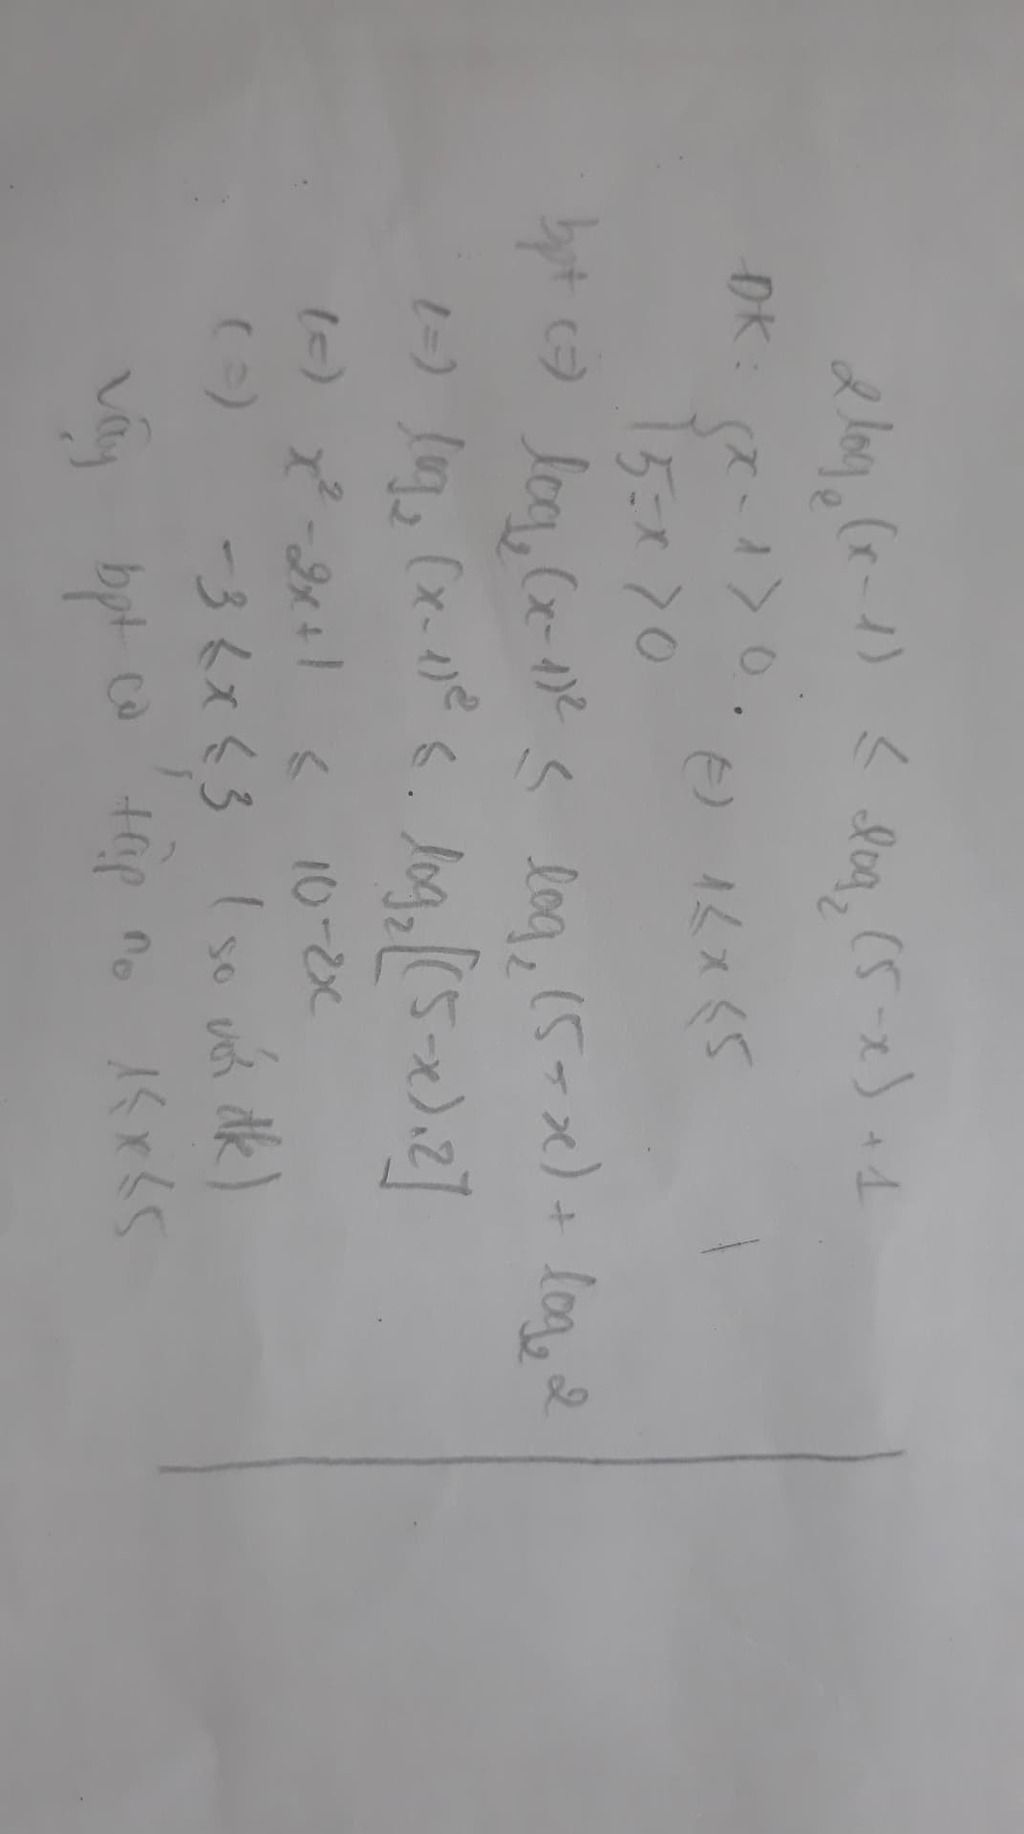 2log₂(x-1) ≤ log₂(5-x)+1
ĐK: { x-1>0
5-x>0 (=) 1≤x≤5
bpt (=) log₂(x-1)² ≤ log₂(5-x)+log₂2
(=) log₂(x-1)² ≤ log₂[(5-x).2]
(=) x²-2x+1 ≤ 10-2x
(=) -3≤x≤3 (so với đk)
Vậy bpt có tập no 1≤x≤5